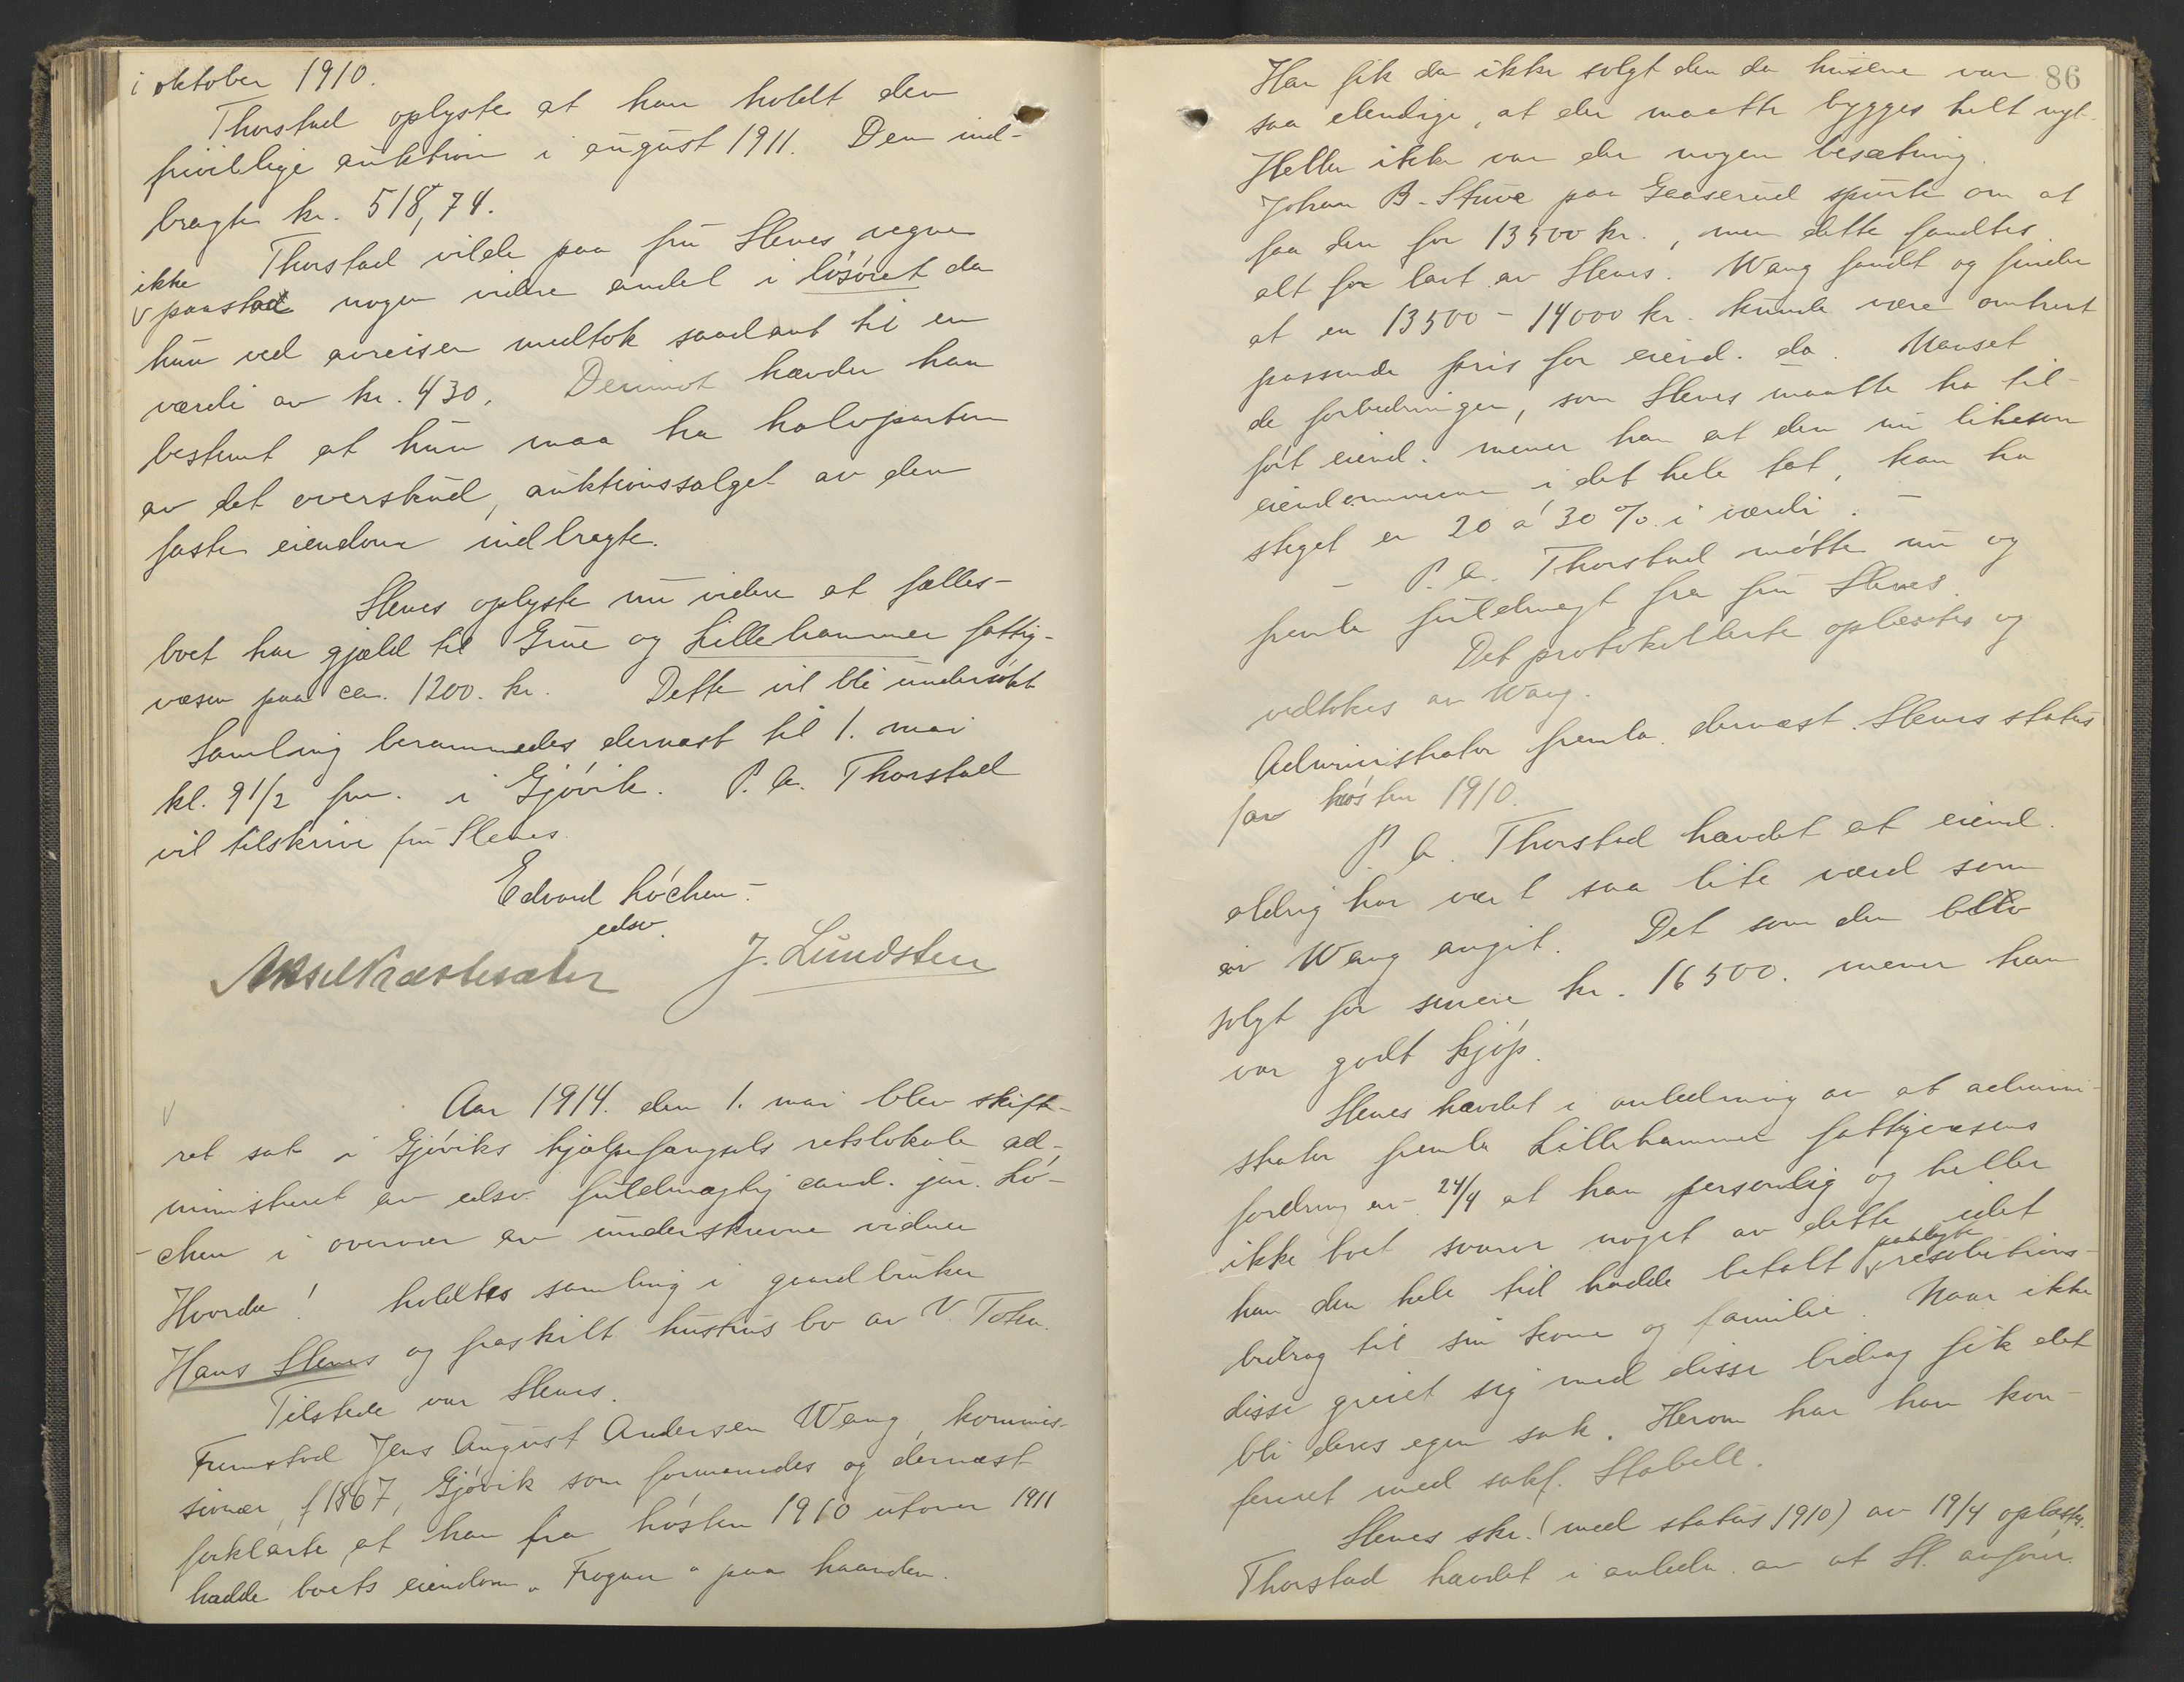 i oktober 1910.
Thorstad oplyste at han holdt den
frivillige auktion i august 1911. Den ind-
bragte kr. 518,74.
Thorstad vilde paa fru Stenes vegne
ikke
paastaa nogen videre andel i løsøret da
hun ved avreisen medtok saadant til en
værdi av kr. 430. Derimot hævder han
bestemt at hun maa ha halvparten
av det overskud, auktionssalget av den
faste eiendom indbragte.
Stenes oplyste nu videre at fælles-
boet har gjæld til Grue og Lillehammer fattig-
væsen paa ca. 1200. kr. Dette vil bli undersøkt
Samling berammedes dernæst til 1. mai
kl. 9 1/2 fm. i Gjøvik. P. A. Thorstad
vil tilskrive fru Stenes.
Edvard Løchen.
edsv.
Aksel J. Lundsten
Aar 1914. den 1. mai blev skifte-
ret sat i Gjøviks hjælpefængsels retslokale ad-
ministreret av edsv. fuldmægtig cand. jur. Lø-
chen i overvær av underskrevne vidner
Hvorda! holdtes samling i gaardbruker
Hans Stenes og fraskilt hustrus bo av V. Toten.
Tilstede var Stenes.
Fremstod Jens August Andersen Wang, kommis-
sionær, f 1867, Gjøvik som formanedes og dernæst
forklarte at han fra høsten 1910 utover 1911
hadde boets eiendom "Frogner" paa haanden.
86
Han fik da ikke solgt den da husene var
saa elendige, at der maatte bygges helt nyt.
Heller ikke var der nogen besætning.
Johan B. Stuve paa Gaaserud spurte om at
faa den for 13500 kr., men dette fandtes
alt for lavt av Stenes. Wang fandt og finder
at en 13500 - 14000 kr. kunde være omtrent
passende pris for eiend. da. Uanset
de forbedringer, som Stenes maatte ha til-
ført eiend. mener han at den nu likesom
eiendommene i det hele tat, kan ha
steget en 20 á 30 % i værdi. -
- P. A. Thorstad møtte nu og
fremla fuldmagt fra fru Stenes.
Det protokollerte oplæstes og
vedtokes av Wang.
Administrator fremla dernæst Stenes status
for høsten 1910.
P. A. Thorstad hævdet at eiend.
aldrig har vært saa lite værd som
av Wang angit. Det som den blev
solgt for senere kr. 16500. mener han
var godt kjøp.
Stenes hævdet i anledning av at admini-
strator fremla Lillehammer fattigvæsens
fordring av 24/4 at han personlig og heller
ikke boet svarer noget av dette idet
paalagte
han den hele tid hadde betalt resolutions-
bidrag til sin kone og familie. Naar ikke
disse greiet sig med disse bidrag fik det
bli deres egen sak. Herom har han kon-
ferert med sakf. Stabell.
Stenes skr. (med status 1910) av 19/4 oplæstes.
Thorstad hævdet i anledn. av at St. anfører